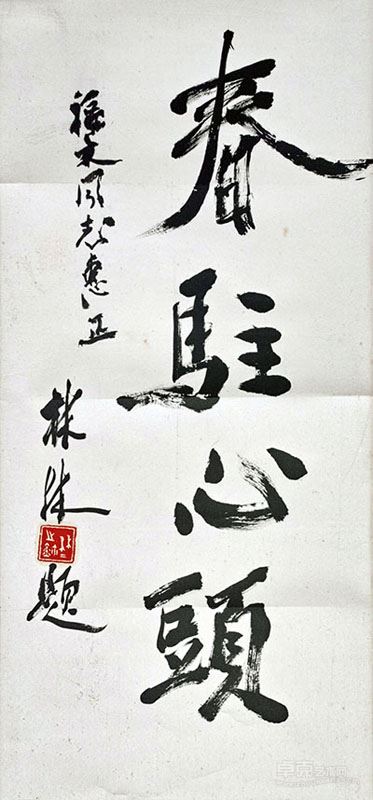 春駐心頭
福来同志惠正
林林
題
卓克艺术网